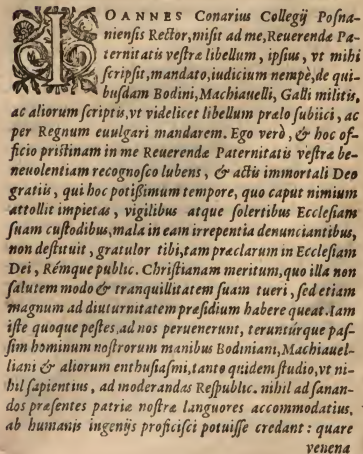 IOANNES Conarius Collegij Posna-
niensis Rector, misit ad me, Reuerendæ Pa-
ternitatis vestræ libellum, ipsius, vt mihi
scripsit, mandato, iudicium nempè, de qui-
busdam Bodini, Machiauelli, Galli militis,
ac aliorum scriptis, vt videlicet libellum prælo subiici, ac
per Regnum euulgari mandarem. Ego verò, & hoc of-
ficio pristinam in me Reuerendæ Paternitatis vestræ be-
neuolentiam recognosco lubens, & actis immortali Deo
gratiis, qui hoc potißimum tempore, quo caput nimium
attollit impietas, vigilibus atque solertibus Ecclesiam
suam custodibus, mala in eam irrepentia denunciantibus,
non destituit, gratulor tibi, tam præclarum in Ecclesiam
Dei, Rémque public. Christianam meritum, quo illa non
salutem modo & tranquillitatem suam tueri, sed etiam
magnum ad diuturnitatem præsidium habere queat. Iam
iste quoque pestes ad nos peruenerunt, terúntúrque pas-
sim hominum nostrorum manibus Bodiniani, Machiauel-
liani & aliorum enthusiasmi, tanto quidem studio, vt ni-
hil sapientius, ad moderandas Respublic. nihil ad sanan-
dos præsentes patriæ nostræ languores accommodatius,
ab humanis ingenijs proficisci potuisse credant: quare
venena